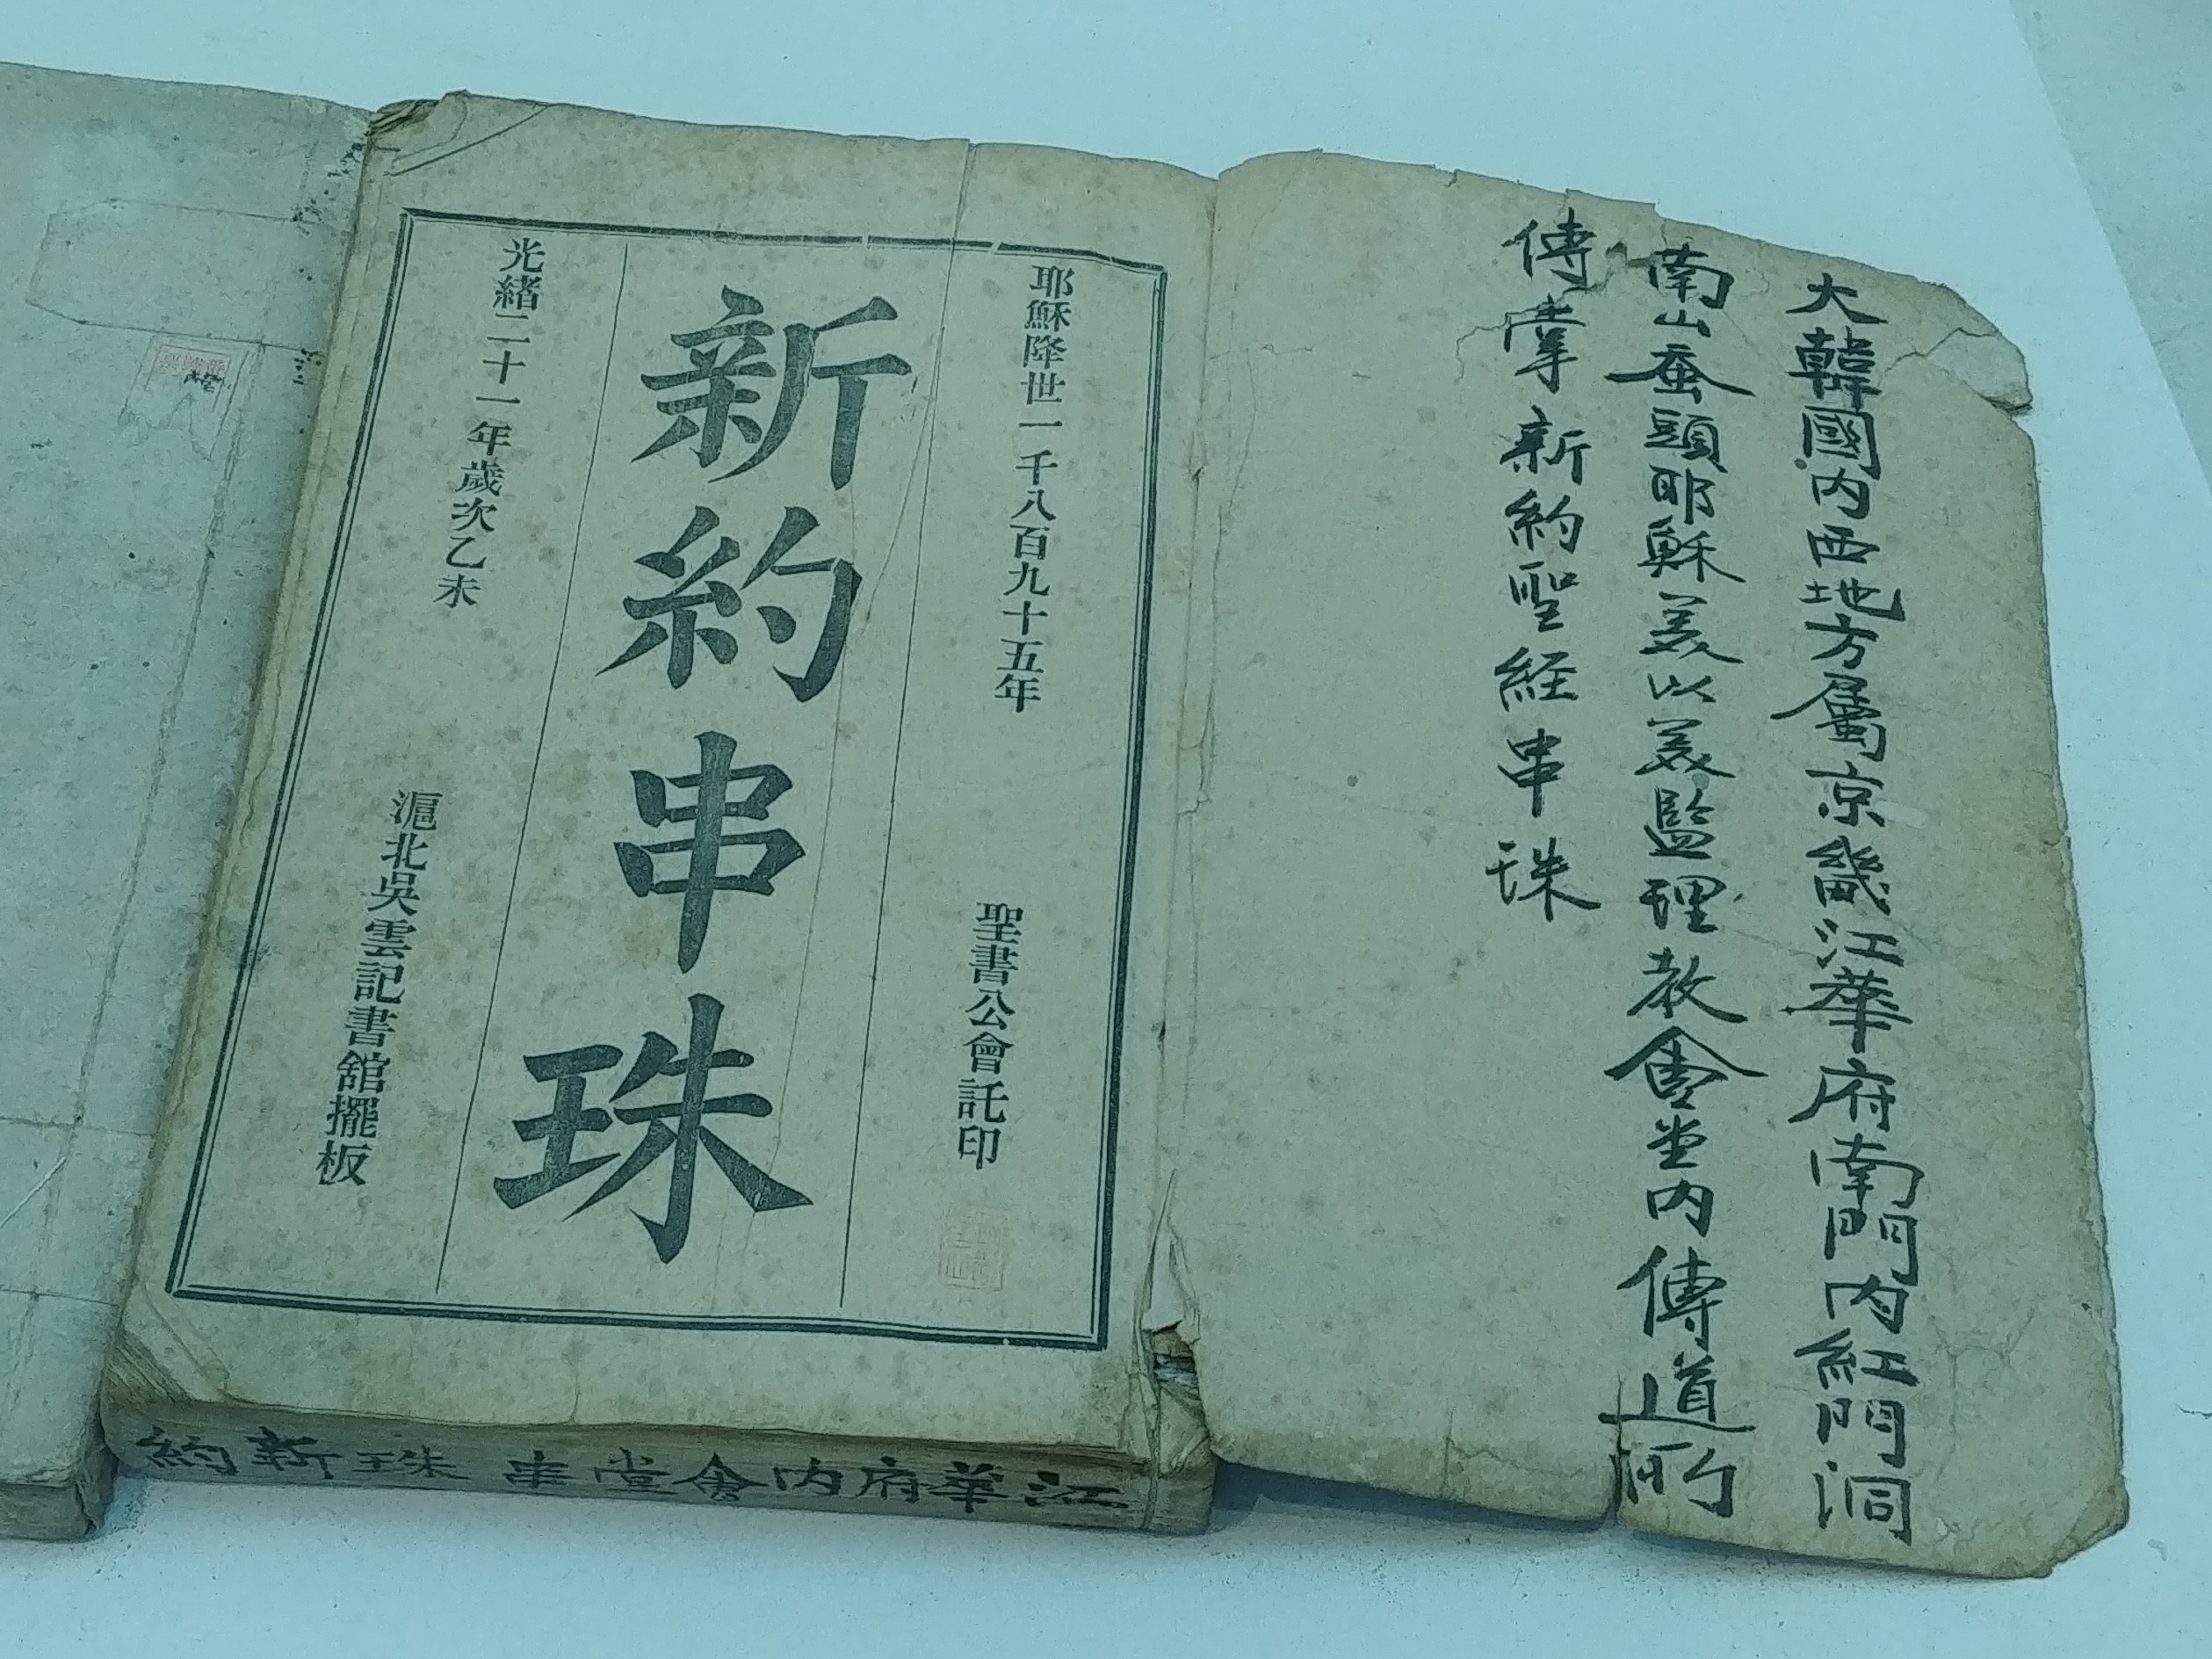 大韓國内西地方屬京畿江華府南門内紅門洞
南山蚕頭耶穌美以美監理教會堂内傳道所
傳掌新約聖経串珠
耶穌降世一千八百九十五年
聖書公會託印
新約串珠
光緒二十一年歲次乙未
滬北吳雲記書舘擺板
江華府内會堂串珠新約